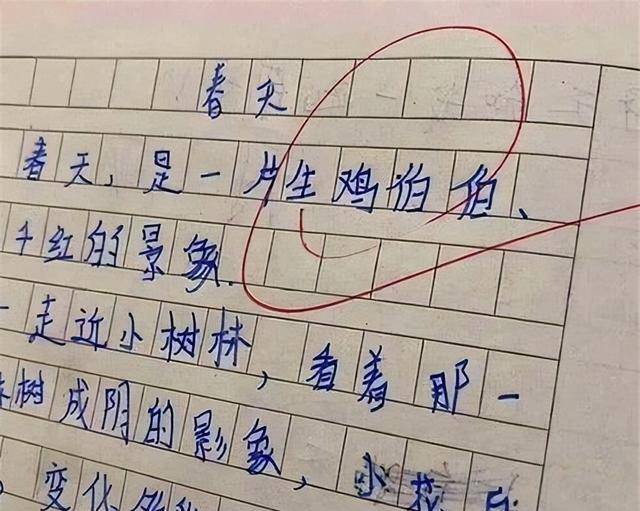 春天
春天，是一片生鸡伯伯、
千红的景象.
一走近小树林，看着那一
树成阴的影象，小花
变化